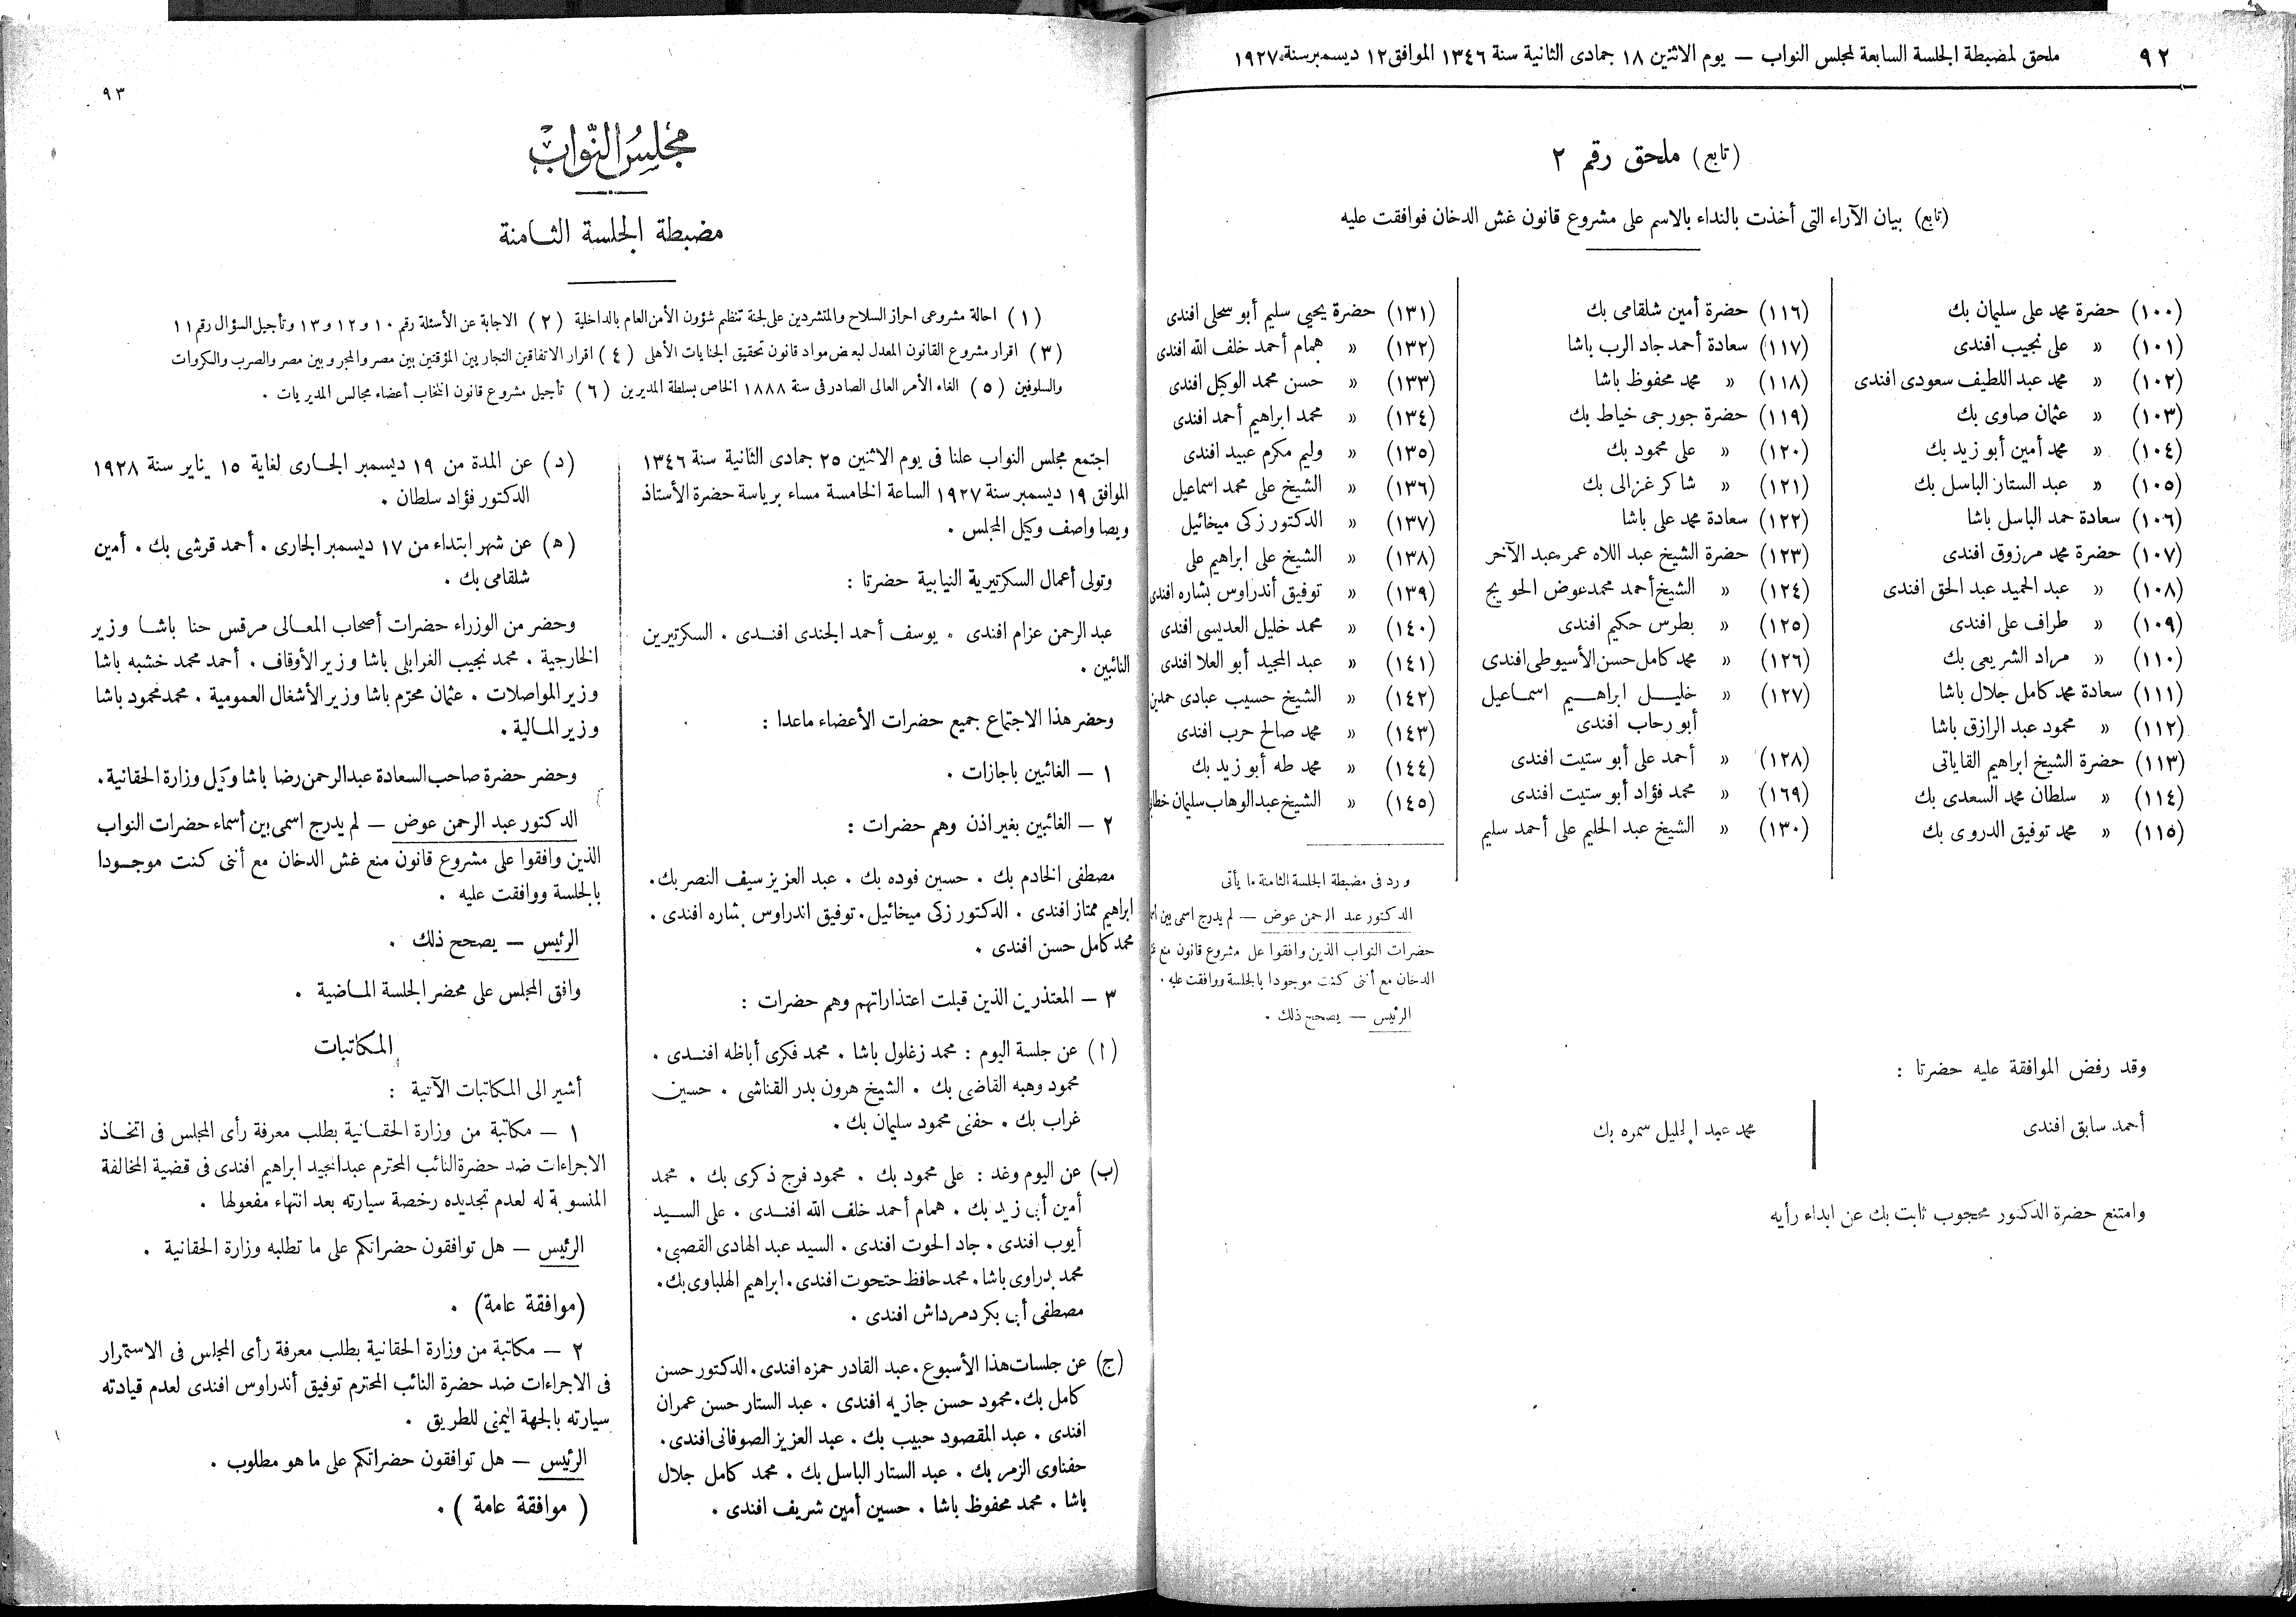 ٩٢
ملحق لمضبطة الجلسة السابعة لمجلس النواب — يوم الاثنين ١٨ جمادى الثانية سنة ١٣٤٦ الموافق ١٢ ديسمبر سنة ١٩٢٧
(تابع) ملحق رقم ٢
(تابع) بيان الآراء التى أخذت بالنداء بالاسم على مشروع قانون غش الدخان فوافقت عليه
(١٠٠) حضرة محمد على سليمان بك
(١٠١) » على نجيب افندى
(١٠٢) » محمد عبد اللطيف سعودى افندى
(١٠٣) » عثمان صاوى بك
(١٠٤) » محمد أمين أبو زيد بك
(١٠٥) » عبد الستار الباسل بك
(١٠٦) سعادة حمد الباسل باشا
(١٠٧) حضرة محمد مرزوق افندى
(١٠٨) » عبد الحميد عبد الحق افندى
(١٠٩) » طراف على افندى
(١١٠) » مراد الشريعى بك
(١١١) سعادة محمد كامل جلال باشا
(١١٢) » محمود عبد الرازق باشا
(١١٣) حضرة الشيخ ابراهيم القاياتى
(١١٤) » سلطان محمد السعدى بك
(١١٥) » محمد توفيق الدروى بك
(١١٦) حضرة أمين شلقامى بك
(١١٧) سعادة أحمد جاد الرب باشا
(١١٨) » محمد محفوظ باشا
(١١٩) حضرة جورجى خياط بك
(١٢٠) » على محمود بك
(١٢١) » شاكر غزالى بك
(١٢٢) سعادة محمد على باشا
(١٢٣) حضرة الشيخ عبد اللاه عمر عبد الآخر
(١٢٤) » الشيخ أحمد محمد عوض الحويج
(١٢٥) » بطرس حكيم افندى
(١٢٦) » محمد كامل حسن الأسيوطى افندى
(١٢٧) » خليل ابراهيم اسماعيل
أبو رحاب افندى
(١٢٨) » أحمد على أبو ستيت افندى
(١٦٩) » محمد فؤاد أبو ستيت افندى
(١٣٠) » الشيخ عبد الحليم على أحمد سليم
(١٣١) حضرة يحيى سليم أبو سحلى افندى
(١٣٢) » همام أحمد خلف الله افندى
(١٣٣) » حسن محمد الوكيل افندى
(١٣٤) » محمد ابراهيم أحمد افندى
(١٣٥) » وليم مكرم عبيد افندى
(١٣٦) » الشيخ على محمد اسماعيل
(١٣٧) » الدكتور زكى ميخائيل
(١٣٨) » الشيخ على ابراهيم على
(١٣٩) » توفيق أندراوس بشاره افندى
(١٤٠) » محمد خليل العديسى افندى
(١٤١) » عبد المجيد أبو العلا افندى
(١٤٢) » الشيخ حسيب عبادى حمدين
(١٤٣) » محمد صالح حرب افندى
(١٤٤) » محمد طه أبو زيد بك
(١٤٥) » الشيخ عبد الوهاب سليمان
ورد فى مضبطة الجلسة الثامنة ما يأتى
الدكتور عبد الرحمن عوض — لم يدرج اسمى بين
حضرات النواب الذين وافقوا على مشروع قانون منع
الدخان مع أننى كنت موجودا بالجلسة ووافقت عليه .
الرئيس — يصحح ذلك .
وقد رفض الموافقة عليه حضرتا :
أحمد سابق افندى
محمد عبد الجليل سمره بك
وامتنع حضرة الدكتور محجوب ثابت بك عن ابداء رأيه
٩٣
مجلس النواب
مضبطة الجلسة الثامنة
(١) احالة مشروعى احراز السلاح والمتشردين على لجنة تنظيم شؤون الأمن العام بالداخلية (٢) الاجابة عن الأسئلة رقم ١٠ و١٢ و١٣ وتأجيل السؤال رقم ١١
(٣) اقرار مشروع القانون المعدل لبعض مواد قانون تحقيق الجنايات الأهلى (٤) اقرار الاتفاقين التجاريين المؤقتين بين مصر والمجر وبين مصر والصرب والكروات
والسلوفين (٥) الغاء الأمر العالى الصادر فى سنة ١٨٨٨ الخاص بسلطة المديرين (٦) تأجيل مشروع قانون انتخاب أعضاء مجالس المديريات .
اجتمع مجلس النواب علنا فى يوم الاثنين ٢٥ جمادى الثانية سنة ١٣٤٦
الموافق ١٩ ديسمبر سنة ١٩٢٧ الساعة الخامسة مساء برياسة حضرة الأستاذ
ويصا واصف وكيل المجلس .
وتولى أعمال السكرتيرية النيابية حضرتا :
عبد الرحمن عزام افندى . يوسف أحمد الجندى افندى . السكرتيرين
النائبين .
وحضر هذا الاجتماع جميع حضرات الأعضاء ماعدا :
١ — الغائبين باجازات .
٢ — الغائبين بغير اذن وهم حضرات :
مصطفى الخادم بك . حسين فوده بك . عبد العزيز سيف النصر بك .
ابراهيم ممتاز افندى . الدكتور زكى ميخائيل . توفيق اندراوس بشاره افندى .
محمد كامل حسن افندى .
٣ — المعتذرين الذين قبلت اعتذاراتهم وهم حضرات :
(ا) عن جلسة اليوم : محمد زغلول باشا . محمد فكرى أباظه افندى .
محمود وهبه القاضى بك . الشيخ هرون بدر القناشى . حسين
غراب بك . حفنى محمود سليمان بك .
(ب) عن اليوم وغد : على محمود بك . محمود فرج ذكرى بك . محمد
أمين أبى زيد بك . همام أحمد خلف الله افندى . على السيد
أيوب افندى . جاد الحوت افندى . السيد عبد الهادى القصبى .
محمد بدراوى باشا . محمد حافظ حتحوت افندى . ابراهيم الهلباوى بك .
مصطفى أبى بكر دمرداش افندى .
(ج) عن جلسات هذا الأسبوع . عبد القادر حمزه افندى . الدكتور حسن
كامل بك . محمود حسن جازيه افندى . عبد الستار حسن عمران
افندى . عبد المقصود حبيب بك . عبد العزيز الصوفانى افندى .
حفناوى الزمر بك . عبد الستار الباسل بك . محمد كامل جلال
باشا . محمد محفوظ باشا . حسين أمين شريف افندى .
(د) عن المدة من ١٩ ديسمبر الجارى لغاية ١٥ يناير سنة ١٩٢٨
الدكتور فؤاد سلطان .
(ه) عن شهر ابتداء من ١٧ ديسمبر الجارى . أحمد قرشى بك . أمين
شلقامى بك .
وحضر من الوزراء حضرات أصحاب المعالى مرقس حنا باشا وزير
الخارجية . محمد نجيب الغرابلى باشا وزير الأوقاف . أحمد محمد خشبه باشا
وزير المواصلات . عثمان محرم باشا وزير الأشغال العمومية . محمد محمود باشا
وزير المالية .
وحضر حضرة صاحب السعادة عبد الرحمن رضا باشا وكيل وزارة الحقانية .
الدكتور عبد الرحمن عوض — لم يدرج اسمى بين أسماء حضرات النواب
الذين وافقوا على مشروع قانون منع غش الدخان مع أننى كنت موجودا
بالجلسة ووافقت عليه .
الرئيس — يصحح ذلك .
وافق المجلس على محضر الجلسة الماضية .
المكاتبات
أشير الى المكاتبات الآتية :
١ — مكاتبة من وزارة الحقانية بطلب معرفة رأى المجلس فى اتخاذ
الاجراءات ضد حضرة النائب المحترم عبد المجيد ابراهيم افندى فى قضية المخالفة
المنسوبة له لعدم تجديده رخصة سيارته بعد انتهاء مفعولها .
الرئيس — هل توافقون حضراتكم على ما تطلبه وزارة الحقانية .
(موافقة عامة) .
٢ — مكاتبة من وزارة الحقانية بطلب معرفة رأى المجلس فى الاستمرار
فى الاجراءات ضد حضرة النائب المحترم توفيق أندراوس افندى لعدم قيادته
سيارته بالجهة اليمنى للطريق .
الرئيس — هل توافقون حضراتكم على ما هو مطلوب .
(موافقة عامة) .